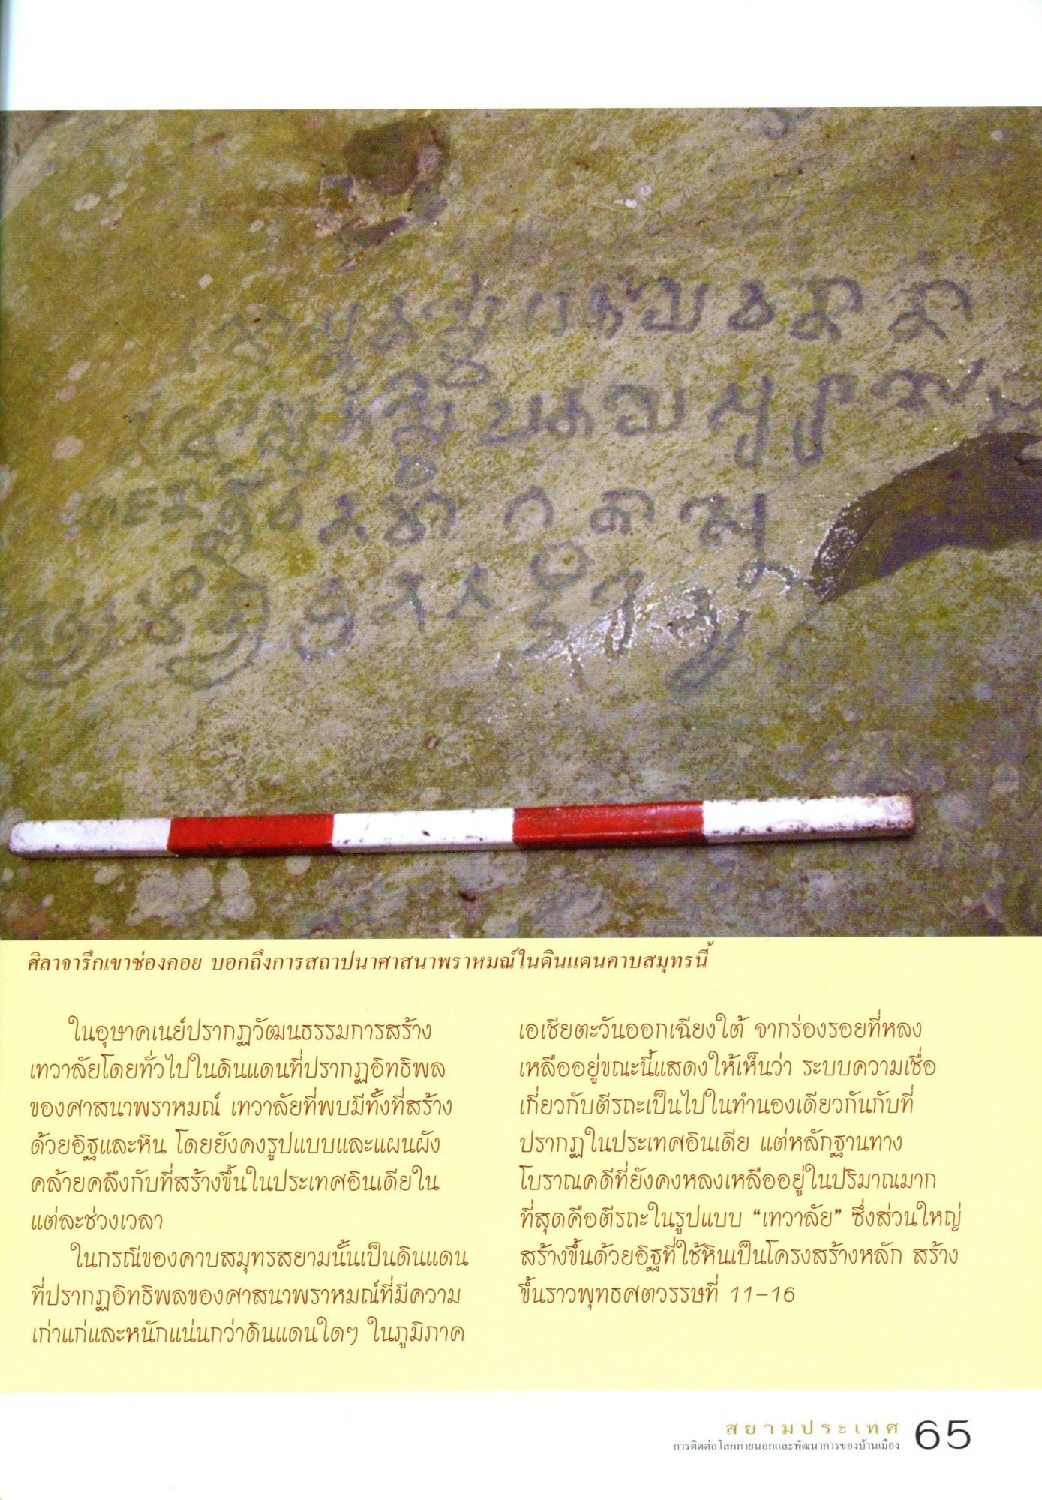 ศิลาจารึกเขาช่องคอย บอกถึงการสถาปนาศาสนาพราหมณ์ในดินแดนคาบสมุทรนี้
ในอุษาคเนย์ปรากฏวัฒนธรรมการสร้าง
เทวาลัยโดยทั่วไปในดินแดนที่ปรากฏอิทธิพล
ของศาสนาพราหมณ์ เทวาลัยที่พบมีทั้งที่สร้าง
ด้วยอิฐและหิน โดยยังคงรูปแบบและแผนผัง
คล้ายคลึงกับที่สร้างขึ้นในประเทศอินเดียใน
แต่ละช่วงเวลา
ในกรณีของคาบสมุทรสยามนั้นเป็นดินแดน
ที่ปรากฏอิทธิพลของศาสนาพราหมณ์ที่มีความ
เก่าแก่และหนักแน่นกว่าดินแดนใดๆ ในภูมิภาค
เอเชียตะวันออกเฉียงใต้ จากร่องรอยที่หลง
เหลืออยู่ขณะนี้แสดงให้เห็นว่า ระบบความเชื่อ
เกี่ยวกับตีรถะเป็นไปในทำนองเดียวกันกับที่
ปรากฏในประเทศอินเดีย แต่หลักฐานทาง
โบราณคดีที่ยังคงหลงเหลืออยู่ในปริมาณมาก
ที่สุดคือตีรถะในรูปแบบ “เทวาลัย” ซึ่งส่วนใหญ่
สร้างขึ้นด้วยอิฐที่ใช้หินเป็นโครงสร้างหลัก สร้าง
ขึ้นราวพุทธศตวรรษที่ 11-16
สยามประเทศ
การติดต่อโลกภายนอกและพัฒนาการของบ้านเมือง
65